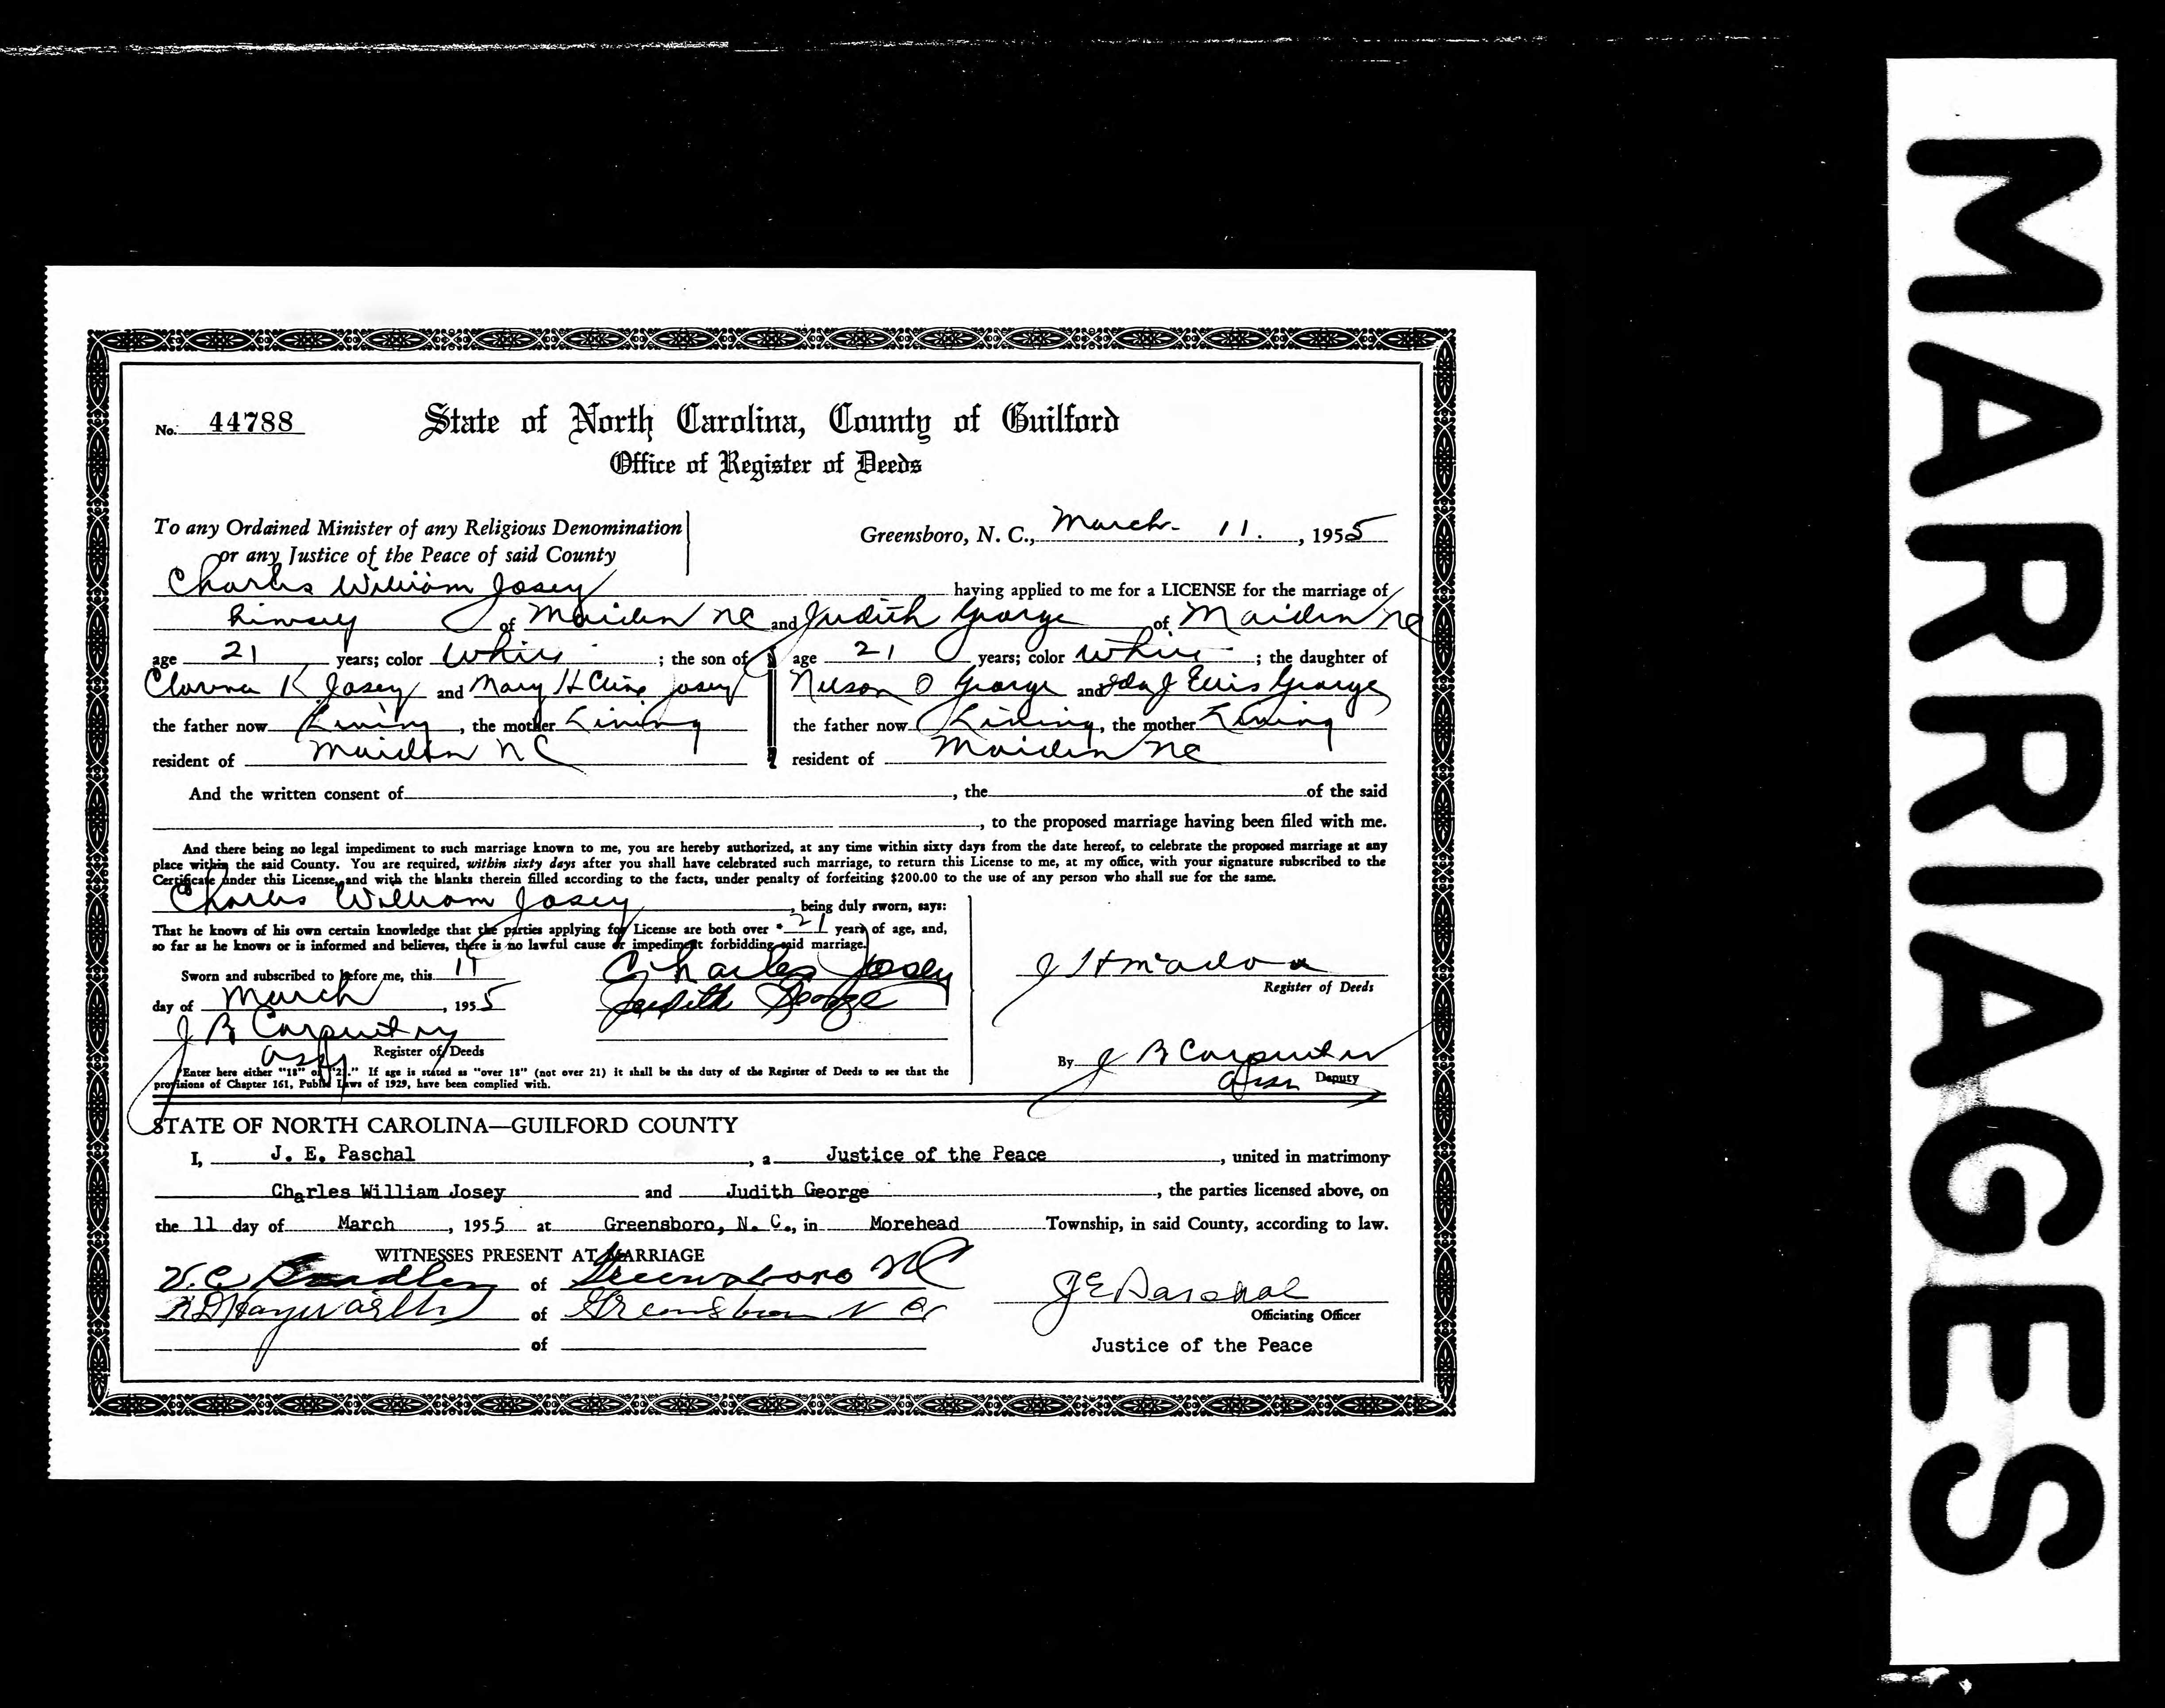 No. 44788
State of North Carolina, County of Guilford
Office of Register of Deeds
To any Ordained Minister of any Religious Denomination
or any Justice of the Peace of said County
Greensboro, N. C., March 11., 1955
Charles William Josey having applied to me for a LICENSE for the marriage of
himself of Maiden NC and Judith George of Maiden NC
age 21 years; color White; the son of
age 21 years; color White; the daughter of
Clarence K Josey and Mary H Cline Josey
Nelson O George and Ida J Ellis George
the father now Living, the mother Living
the father now Living, the mother Living
resident of Maiden NC
resident of Maiden NC
And the written consent of , the of the said
, to the proposed marriage having been filed with me.
And there being no legal impediment to such marriage known to me, you are hereby authorized, at any time within sixty days from the date hereof, to celebrate the proposed marriage at any
place within the said County. You are required, within sixty days after you shall have celebrated such marriage, to return this License to me, at my office, with your signature subscribed to the
Certificate under this License, and with the blanks therein filled according to the facts, under penalty of forfeiting $200.00 to the use of any person who shall sue for the same.
Charles William Josey, being duly sworn, says:
That he knows of his own certain knowledge that the parties applying for License are both over * 21 years of age, and,
so far as he knows or is informed and believes, there is no lawful cause or impediment forbidding said marriage.
Sworn and subscribed to before me, this 11
day of March, 1955
J B Carpenter
Asst Register of Deeds
Charles Josey
Judith George
Register of Deeds
By J B Carpenter
Asst Deputy
*Enter here either "18" or "21." If age is stated as "over 18" (not over 21) it shall be the duty of the Register of Deeds to see that the
provisions of Chapter 161, Public Laws of 1929, have been complied with.
STATE OF NORTH CAROLINA—GUILFORD COUNTY
I, J. E. Paschal, a Justice of the Peace, united in matrimony
Charles William Josey and Judith George, the parties licensed above, on
the 11 day of March, 1955 at Greensboro, N. C., in Morehead Township, in said County, according to law.
WITNESSES PRESENT AT MARRIAGE
V. C. of Greensboro NC
of Greensboro N C
of
J E Paschal
Officiating Officer
Justice of the Peace
MARRIAGES